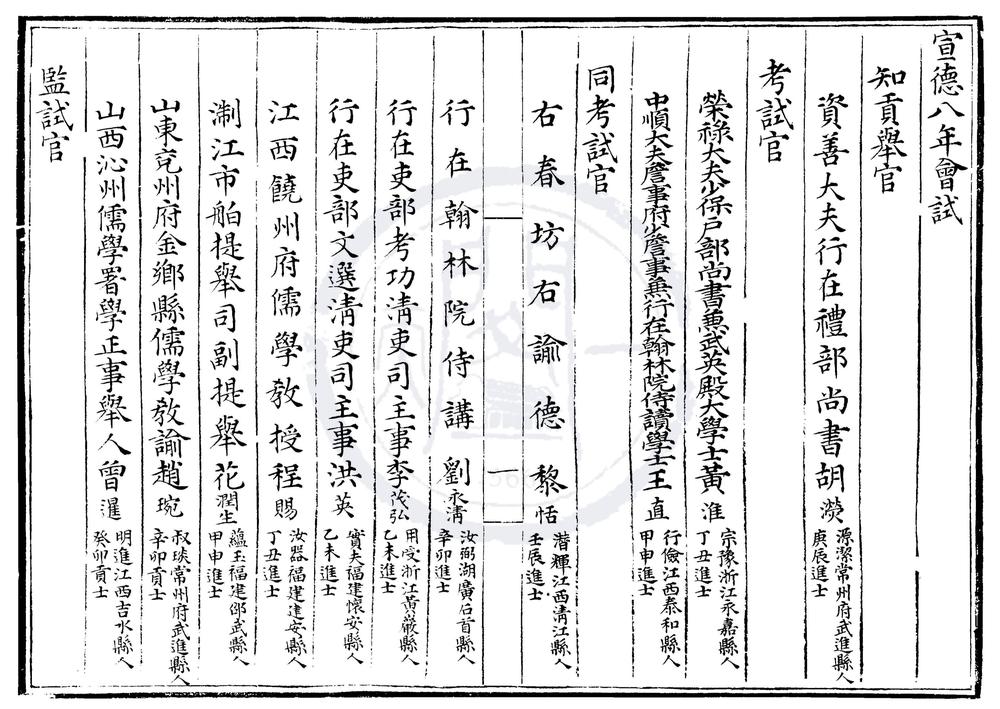 宣德八年會試
知貢舉官
資善大夫行在禮部尚書胡濙
源潔常州府武進縣人
庚辰進士
考試官
榮祿大夫少保戶部尚書兼武英殿大學士黃淮
宗豫浙江永嘉縣人
丁丑進士
中順大夫詹事府少詹事兼行在翰林院侍讀學士王直
行儉江西泰和縣人
甲申進士
同考試官
右春坊右諭德黎恬
潛輝江西清江縣人
壬辰進士
一
行在翰林院侍講劉永清
汝弼湖廣石首縣人
辛卯貢士
行在吏部考功清吏司主事李茂弘
用受浙江黃巖縣人
乙未進士
行在吏部文選清吏司主事洪英
實夫福建懷安縣人
乙未進士
江西饒州府儒學教授程賜
汝器福建建安縣人
丁丑進士
淛江市舶提舉司副提舉花潤生
蘊玉福建邵武縣人
甲申進士
山東兗州府金鄉縣儒學教諭趙琬
叔琰常州府武進縣人
辛卯貢士
山西沁州儒學署學正事舉人曾暹
明進江西吉水縣人
癸卯貢士
監試官